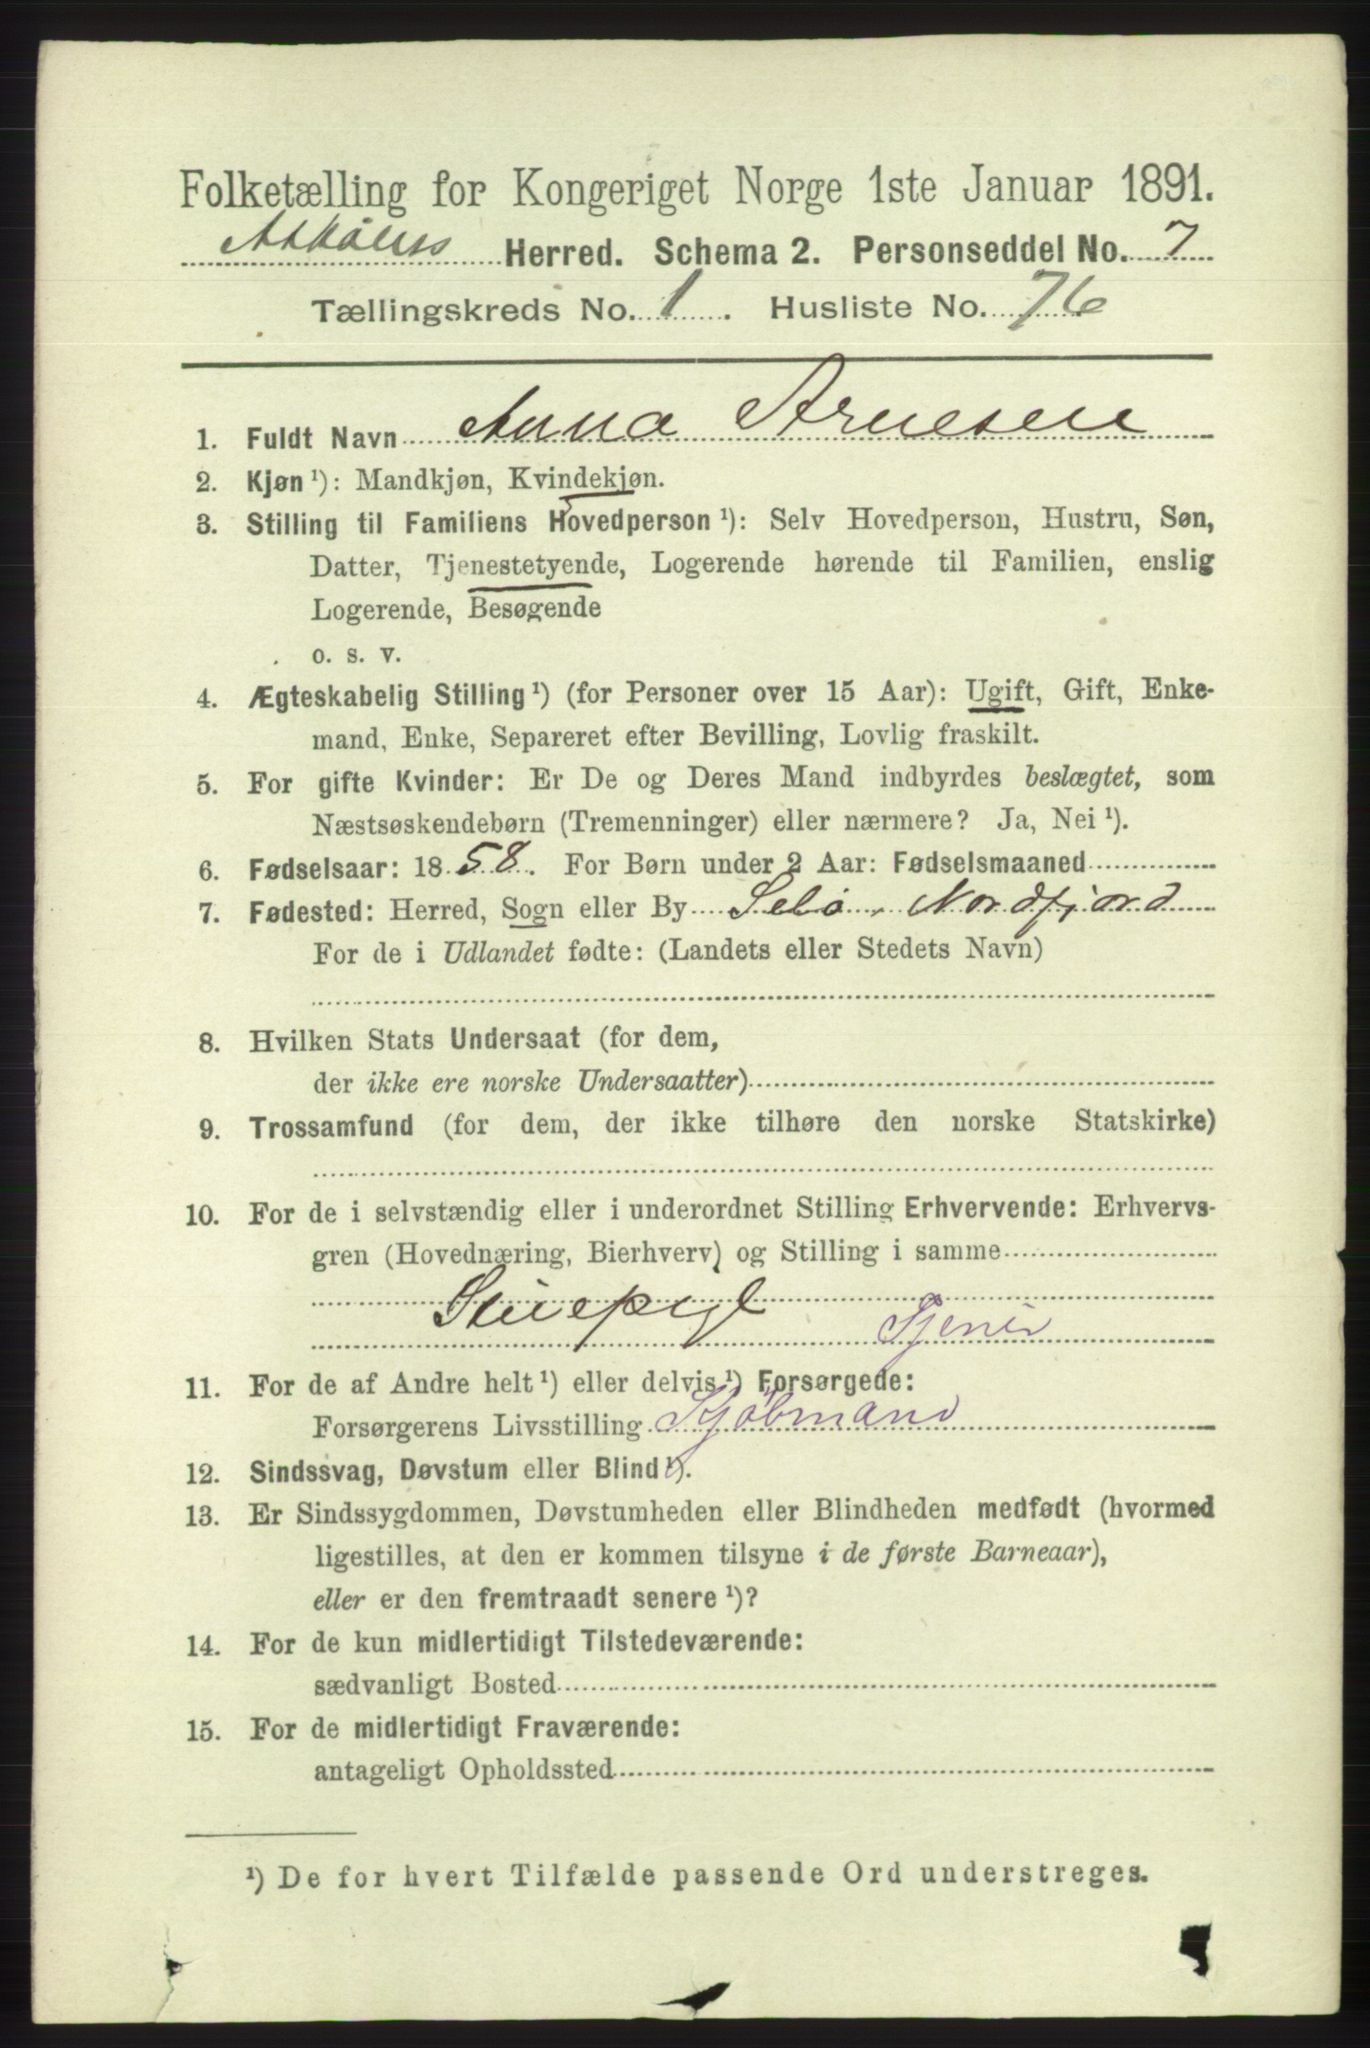 Folketælling for Kongeriget Norge 1ste Januar 1891.
Askøens Herred. Schema 2. Personseddel No. 7
Tællingskreds No. 1. Husliste No. 76
1. Fuldt Navn Anna Arnesen
2. Kjøn ¹): Mandkjøn, Kvindekjøn.
3. Stilling til Familiens Hovedperson ¹): Selv Hovedperson, Hustru, Søn,
Datter, Tjenestetyende, Logerende hørende til Familien, enslig
Logerende, Besøgende
o. s. v.
4. Ægteskabelig Stilling ¹) (for Personer over 15 Aar): Ugift, Gift, Enke-
mand, Enke, Separeret efter Bevilling, Lovlig fraskilt.
5. For gifte Kvinder: Er De og Deres Mand indbyrdes beslægtet, som
Næstsøskendebørn (Tremenninger) eller nærmere? Ja, Nei ¹).
6. Fødselsaar: 1858. For Børn under 2 Aar: Fødselsmaaned
7. Fødested: Herred, Sogn eller By Selø, Nordfjord
For de i Udlandet fødte: (Landets eller Stedets Navn)
8. Hvilken Stats Undersaat (for dem,
der ikke ere norske Undersaatter)
9. Trossamfund (for dem, der ikke tilhøre den norske Statskirke)
10. For de i selvstændig eller i underordnet Stilling Erhvervende: Erhvervs-
gren (Hovednæring, Bierhverv) og Stilling i samme
Stuepige Tjener
11. For de af Andre helt ¹) eller delvis ¹) Forsørgede:
Forsørgerens Livsstilling Kjøbmand
12. Sindssvag, Døvstum eller Blind ¹).
13. Er Sindssygdommen, Døvstumheden eller Blindheden medfødt (hvormed
ligestilles, at den er kommen tilsyne i de første Barneaar),
eller er den fremtraadt senere ¹)?
14. For de kun midlertidigt Tilstedeværende:
sædvanligt Bosted
15. For de midlertidigt Fraværende:
antageligt Opholdssted
¹) De for hvert Tilfælde passende Ord understreges.